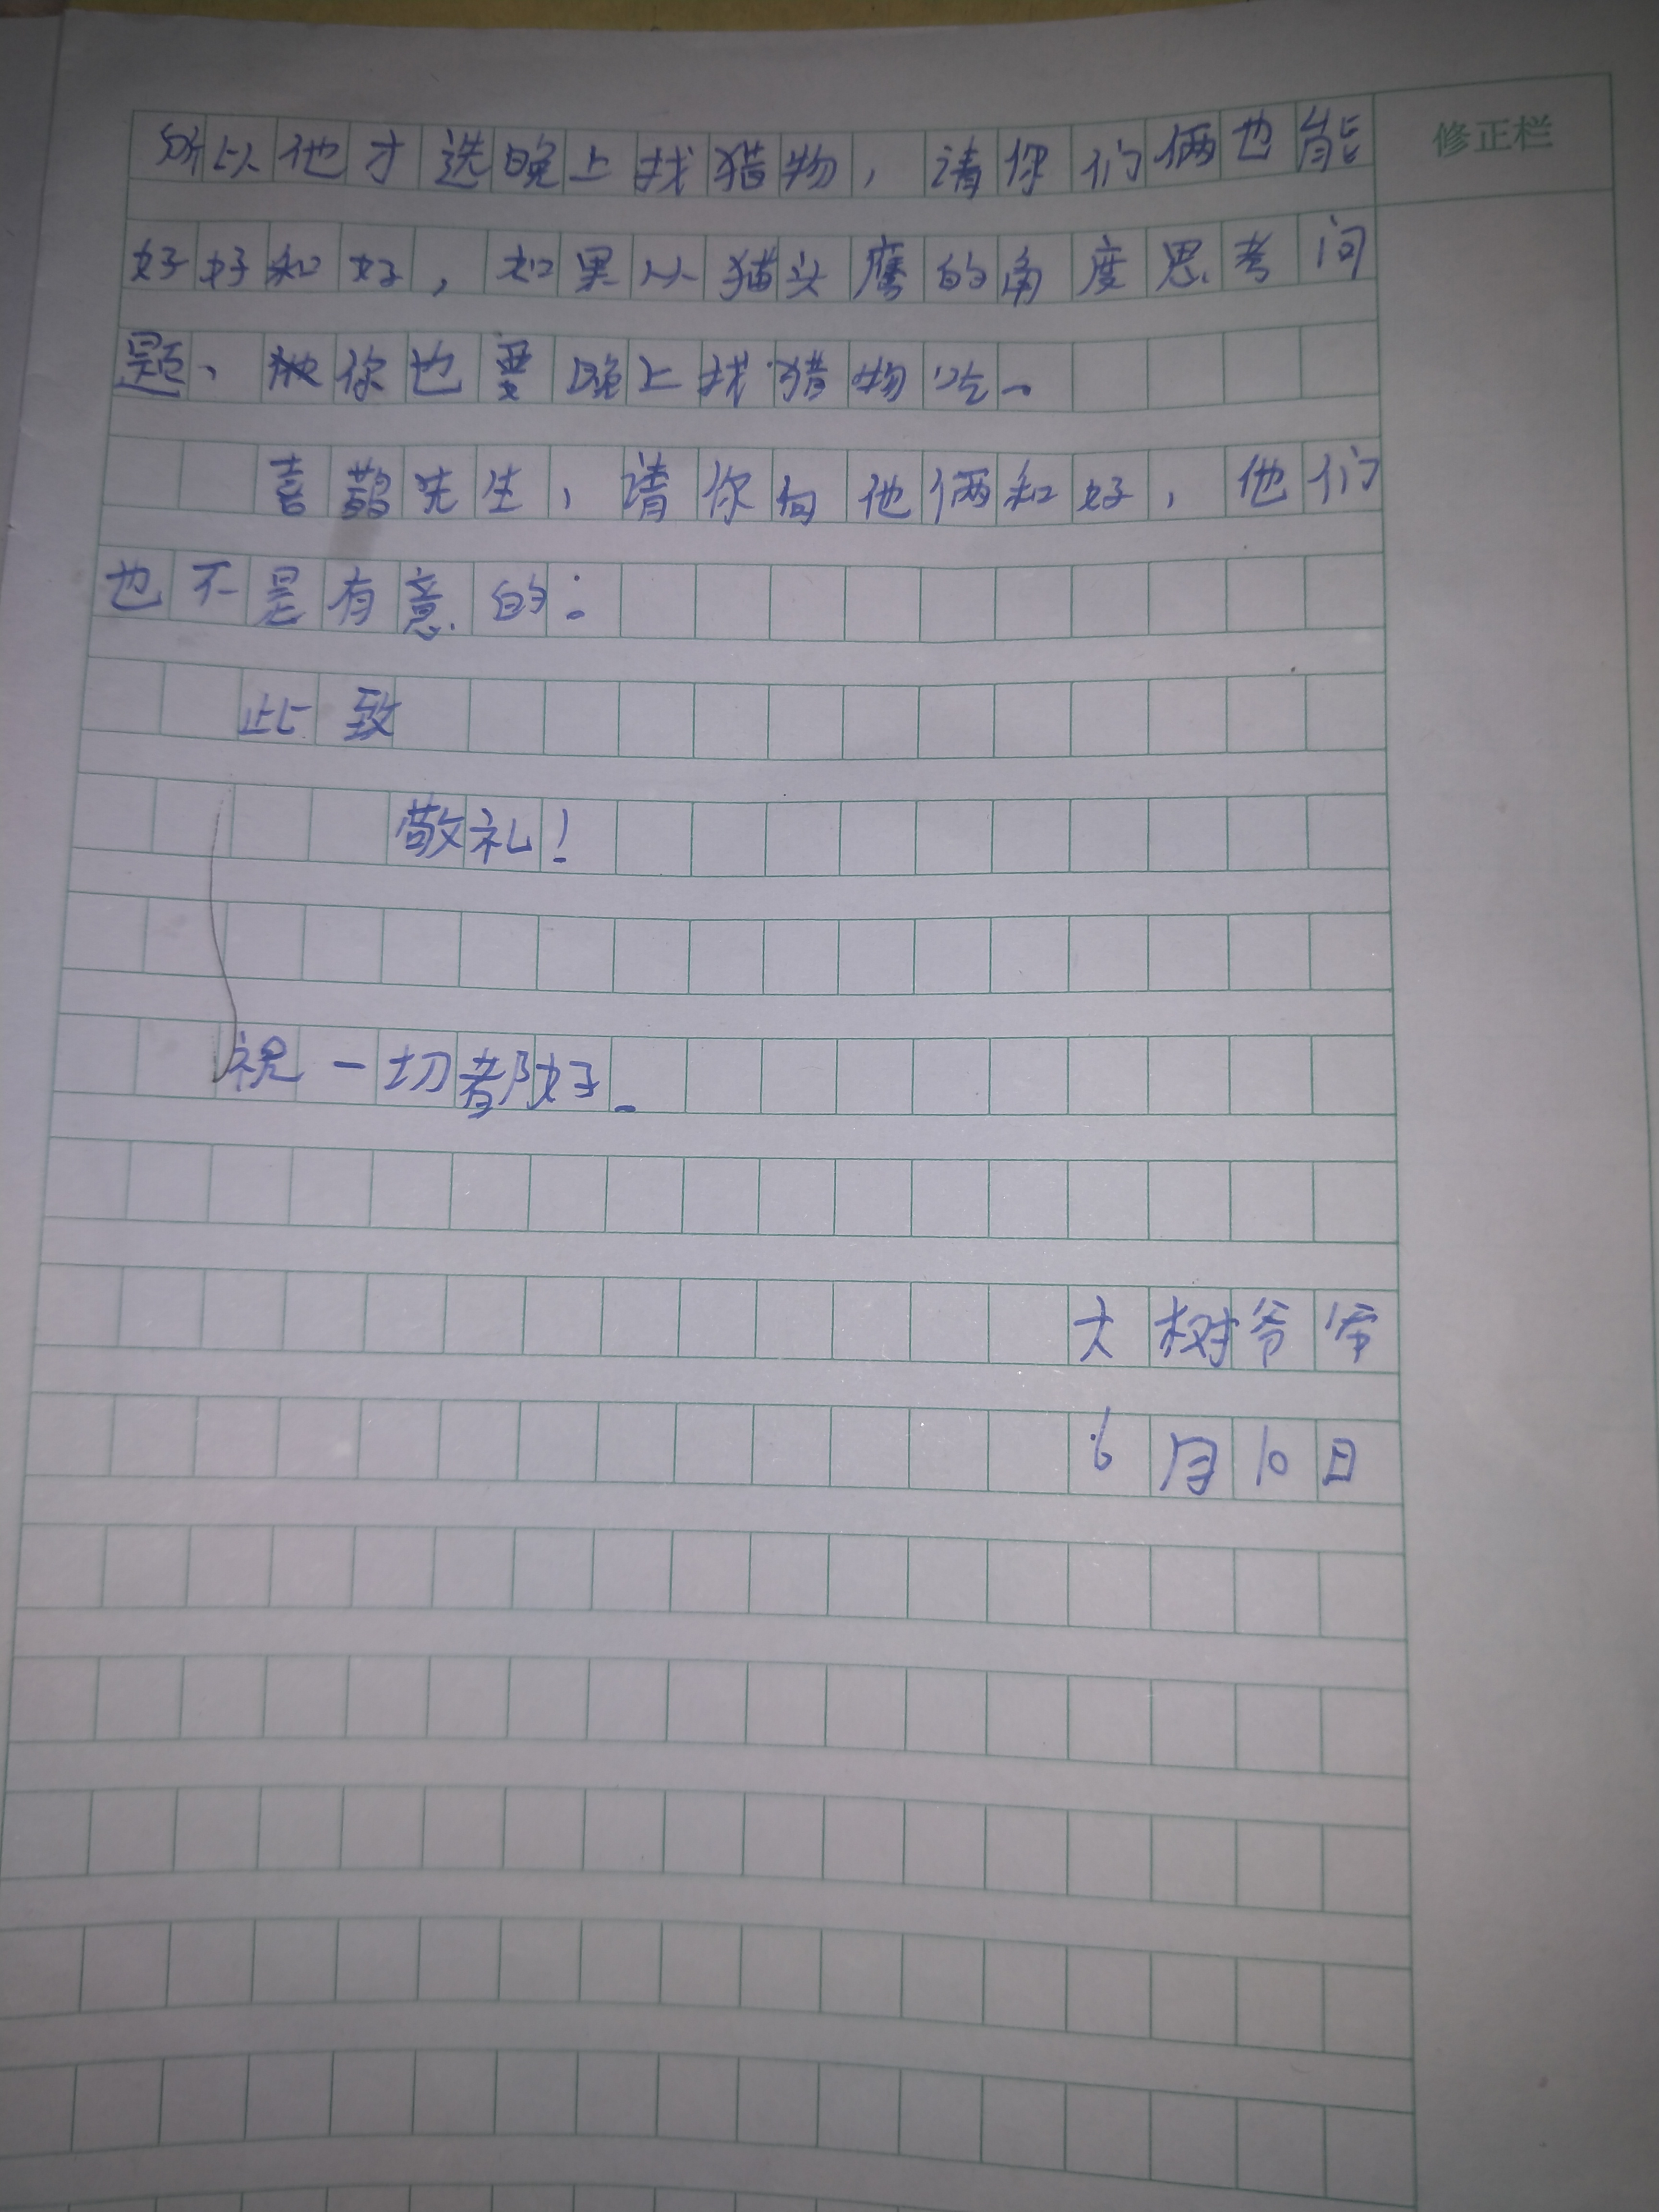 修正栏
所以他才选晚上找猎物，请你们俩也能
好好和好，如果以猫头鹰的角度思考问
题、你也要晚上找猎物吃。
喜鹊先生，请你向他俩和好，他们
也不是有意的：
此致
敬礼！
祝一切都好。
大树爷爷
6月10日